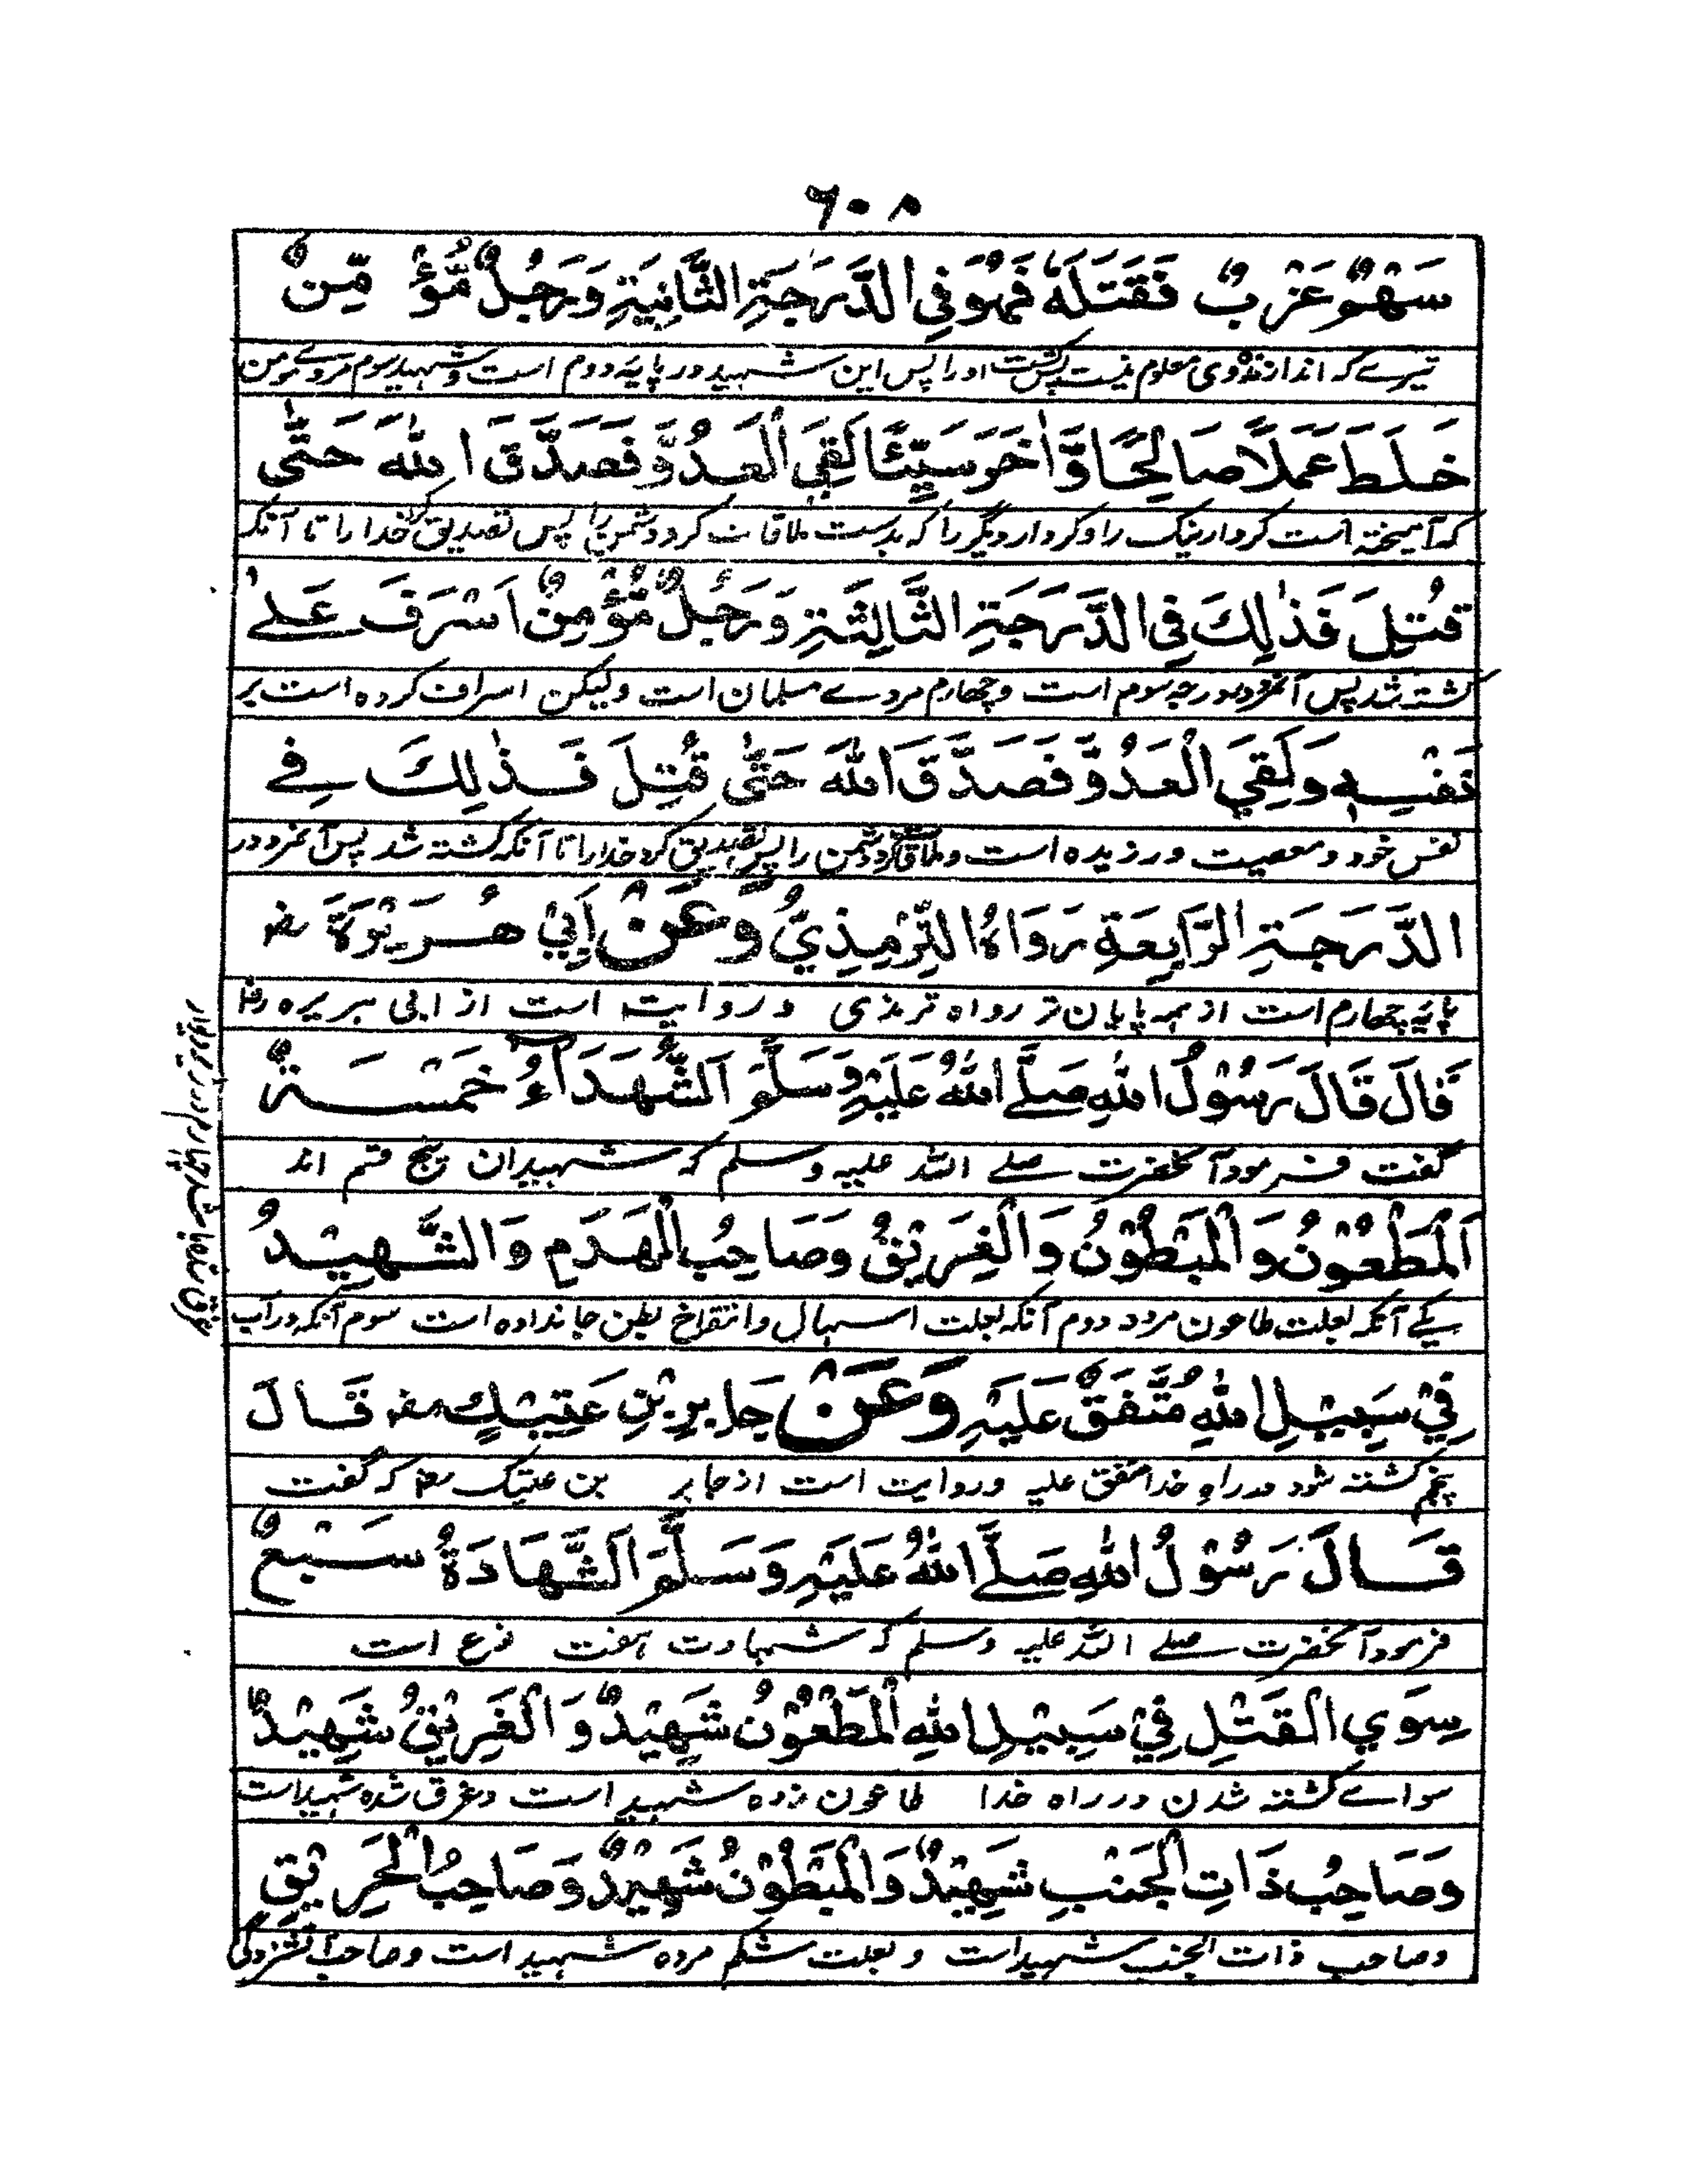 ۶۰۸
سَهْمٌ عَزْبٌ فَقَتَلَهٗ فَهُوَ فِی الدَّرَجَةِ الثَّانِیَةِ وَرَجُلٌ مُّؤْمِنٌ
تیرے که اندازنده وی معلوم نیست پس کشت اورا پس این شهید در پایۀ دوم است و شهید سوم مردے مومن
خَلَطَ عَمَلًا صَالِحًا وَّاٰخَرَ سَیِّئًا لَقِیَ الْعَدُوَّ فَصَدَّقَ اللهَ حَتّٰی
که آمیخته است کردار نیک را و کردار دیگر را که بدست ملاقات کرد دشمن را پس تصدیق کرد خدا را تا آنکه
قُتِلَ فَذٰلِكَ فِی الدَّرَجَةِ الثَّالِثَةِ وَرَجُلٌ مُّؤْمِنٌ اَسْرَفَ عَلٰے
کشته شد پس آنمرد در درجه سوم است و چهارم مردے مسلمان است ولیکن اسراف کرده است بر
نَفْسِهٖ وَلَقِیَ الْعَدُوَّ فَصَدَّقَ اللهَ حَتّٰی قُتِلَ فَذٰلِكَ فِے
نفس خود و معصیت ورزیده است و ملاقات کرد دشمن را پس تصدیق کرد خدا را تا آنکه کشته شد پس آنمرد در
الدَّرَجَةِ الرَّابِعَةِ رَوَاهُ التِّرْمِذِیُّ وَعَنْ اَبِیْ هُرَیْرَةَ رض
پایۀ چهارم است از همه پایان تر رواه ترمذی و روایت است از ابی هریره رض
قَالَ قَالَ رَسُوْلُ اللهِ صَلَّے اللهُ عَلَیْهِ وَسَلَّمَ اَلشُّهَدَآءُ خَمْسَةٌ
گفت فرمود آنحضرت صلے الله علیه وسلم که شهیدان پنج قسم اند
اَلْمَطْعُوْنُ وَالْمَبْطُوْنُ وَالْغَرِیْقُ وَصَاحِبُ الْهَدَمِ وَالشَّهِیْدُ
یکے آنکه بعلت طاعون مرد دوم آنکه بعلت اسهال وانتفاخ بطن جانداده است سوم آنکه در آب
فِیْ سَبِیْلِ اللهِ مُتَّفَقٌ عَلَیْهِ وَعَنْ جَابِرِ بْنِ عَتِیْكٍ رض قَالَ
پنجم کشته شود در راه خدا متفق علیه و روایت است از جابر بن عتیک رض که گفت
قَالَ رَسُوْلُ اللهِ صَلَّے اللهُ عَلَیْهِ وَسَلَّمَ الشَّهَادَةُ سَبْعٌ
فرمود آنحضرت صلے الله علیه وسلم که شهادت هفت نوع است
سِوَی الْقَتْلِ فِیْ سَبِیْلِ اللهِ الْمَطْعُوْنُ شَهِیْدٌ وَالْغَرِیْقُ شَهِیْدٌ
سوائے کشته شدن در راه خدا طاعون زده شهید است و غرق شده شهید است
وَصَاحِبُ ذَاتِ الْجَنْبِ شَهِیْدٌ وَالْمَبْطُوْنُ شَهِیْدٌ وَصَاحِبُ الْحَرِیْقِ
وصاحب ذات الجنب شهید است و بعلت شکم مرده شهید است وصاحب آتشزدگی